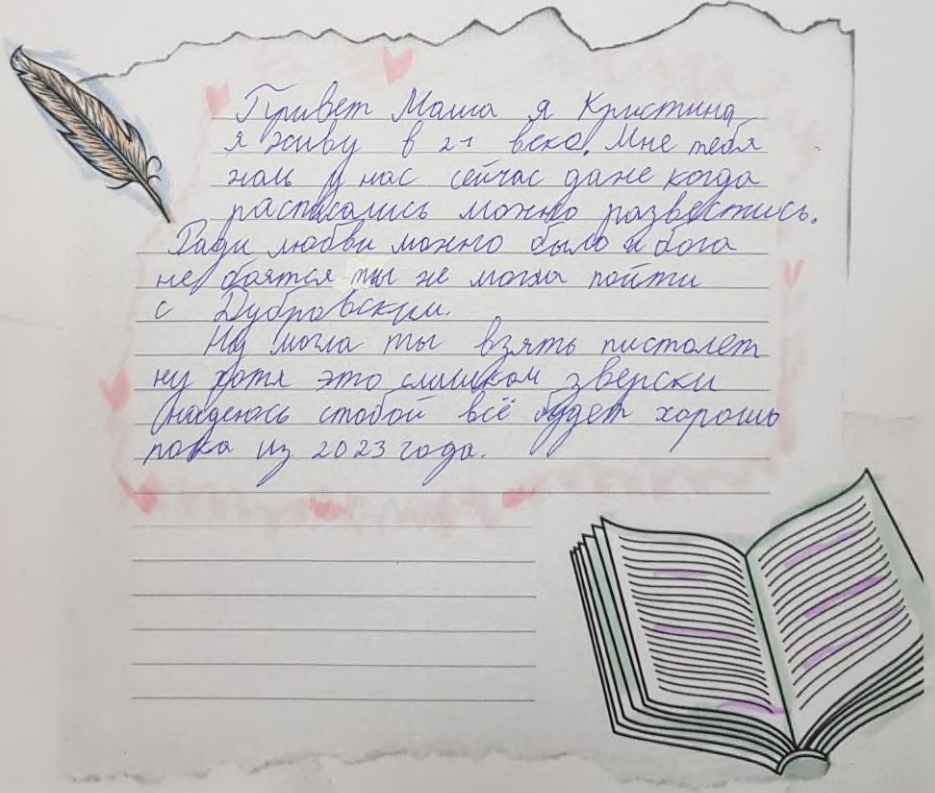 Привет Маша я Кристина
я живу в 21 веке. Мне тебя
жаль у нас сейчас даже когда
расписались можно развестись.
Ради любви можно было и бога
не боятся ты же могла пойти
с Дубровским.
Ну могла ты взять пистолет
ну хотя это слишком зверски
надеюсь стобой всё будет хорошо
пока из 2023 года.